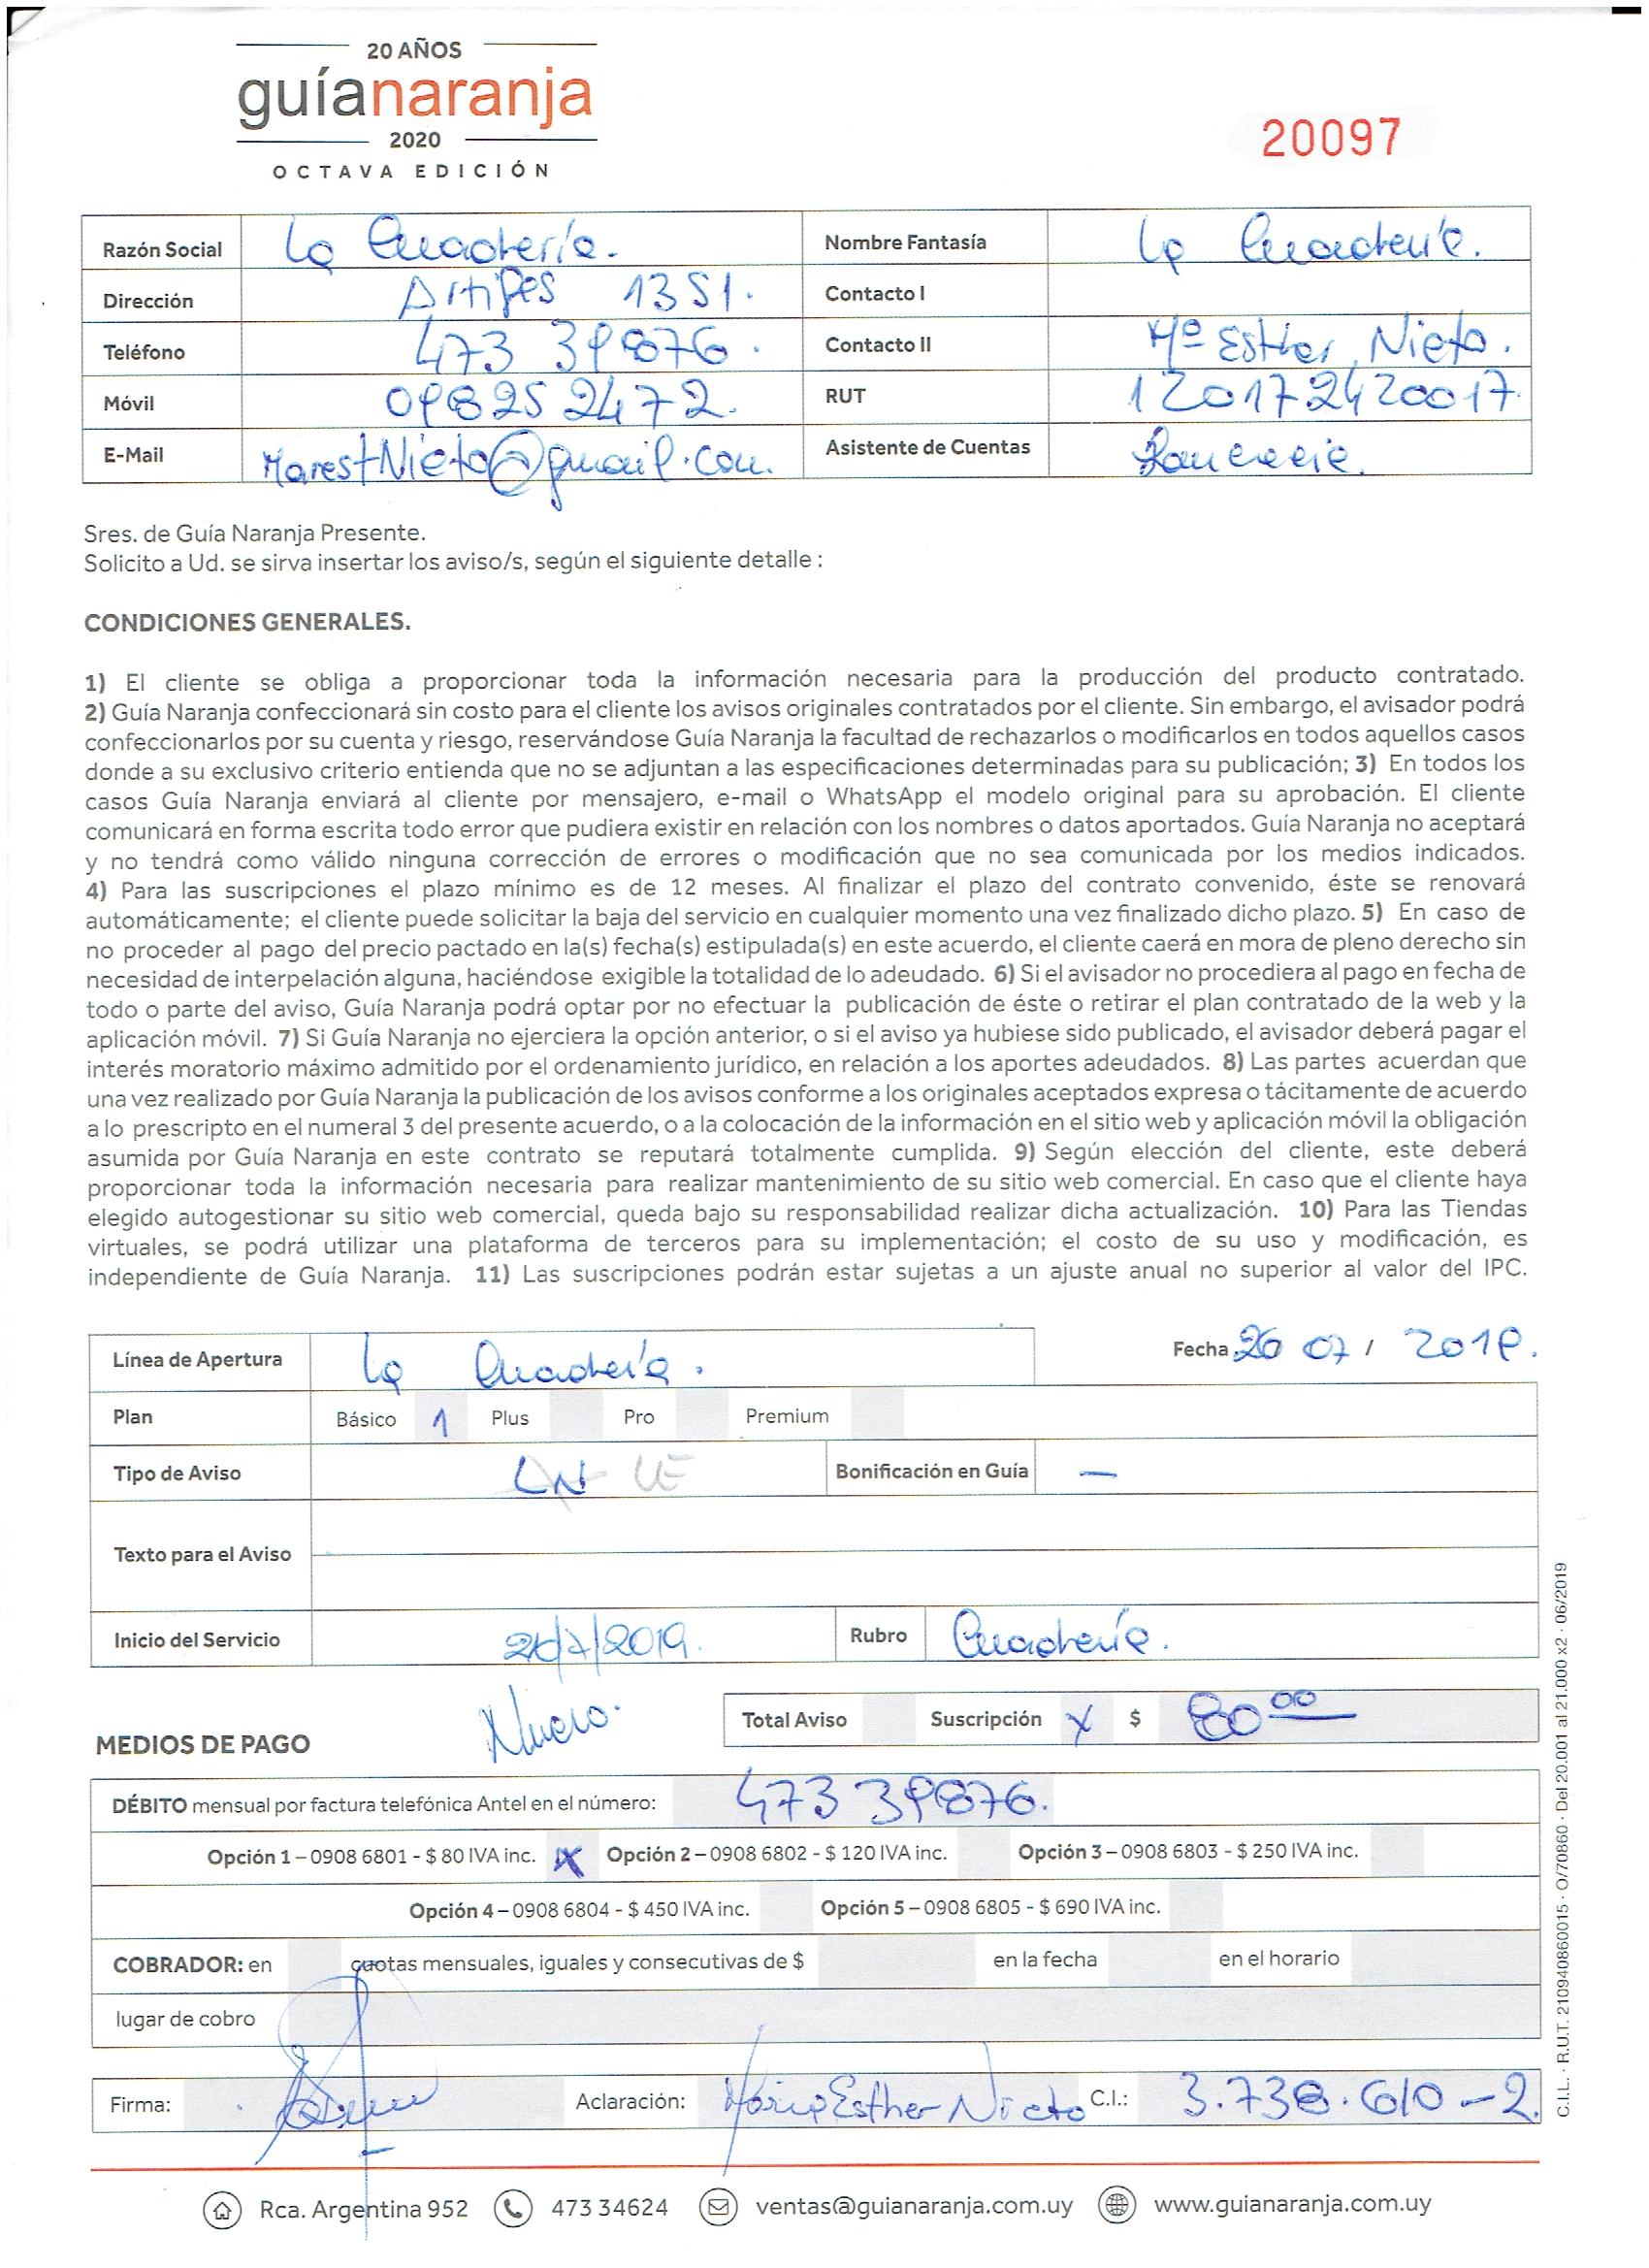 20 AÑOS
guíanaranja
2020
OCTAVA EDICIÓN
20097
Razón Social La Cuadrería. Nombre Fantasía La Cuadrería.
Dirección Artigas 1351. Contacto I
Teléfono 473 39876. Contacto II Mª Esther Nieto.
Móvil 098252472. RUT 120172420017.
E-Mail MarestNieto@gmail.com. Asistente de Cuentas
Sres. de Guía Naranja Presente.
Solicito a Ud. se sirva insertar los aviso/s, según el siguiente detalle :
CONDICIONES GENERALES.
1) El cliente se obliga a proporcionar toda la información necesaria para la producción del producto contratado.
2) Guía Naranja confeccionará sin costo para el cliente los avisos originales contratados por el cliente. Sin embargo, el avisador podrá
confeccionarlos por su cuenta y riesgo, reservándose Guía Naranja la facultad de rechazarlos o modificarlos en todos aquellos casos
donde a su exclusivo criterio entienda que no se adjuntan a las especificaciones determinadas para su publicación; 3) En todos los
casos Guía Naranja enviará al cliente por mensajero, e-mail o WhatsApp el modelo original para su aprobación. El cliente
comunicará en forma escrita todo error que pudiera existir en relación con los nombres o datos aportados. Guía Naranja no aceptará
y no tendrá como válido ninguna corrección de errores o modificación que no sea comunicada por los medios indicados.
4) Para las suscripciones el plazo mínimo es de 12 meses. Al finalizar el plazo del contrato convenido, éste se renovará
automáticamente; el cliente puede solicitar la baja del servicio en cualquier momento una vez finalizado dicho plazo. 5) En caso de
no proceder al pago del precio pactado en la(s) fecha(s) estipulada(s) en este acuerdo, el cliente caerá en mora de pleno derecho sin
necesidad de interpelación alguna, haciéndose exigible la totalidad de lo adeudado. 6) Si el avisador no procediera al pago en fecha de
todo o parte del aviso, Guía Naranja podrá optar por no efectuar la publicación de éste o retirar el plan contratado de la web y la
aplicación móvil. 7) Si Guía Naranja no ejerciera la opción anterior, o si el aviso ya hubiese sido publicado, el avisador deberá pagar el
interés moratorio máximo admitido por el ordenamiento jurídico, en relación a los aportes adeudados. 8) Las partes acuerdan que
una vez realizado por Guía Naranja la publicación de los avisos conforme a los originales aceptados expresa o tácitamente de acuerdo
a lo prescripto en el numeral 3 del presente acuerdo, o a la colocación de la información en el sitio web y aplicación móvil la obligación
asumida por Guía Naranja en este contrato se reputará totalmente cumplida. 9) Según elección del cliente, este deberá
proporcionar toda la información necesaria para realizar mantenimiento de su sitio web comercial. En caso que el cliente haya
elegido autogestionar su sitio web comercial, queda bajo su responsabilidad realizar dicha actualización. 10) Para las Tiendas
virtuales, se podrá utilizar una plataforma de terceros para su implementación; el costo de su uso y modificación, es
independiente de Guía Naranja. 11) Las suscripciones podrán estar sujetas a un ajuste anual no superior al valor del IPC.
Línea de Apertura La Cuadrería. Fecha 26 07 / 2019.
Plan Básico 1 Plus Pro Premium
Tipo de Aviso LN LE Bonificación en Guía —
Texto para el Aviso
Inicio del Servicio 26/7/2019. Rubro Cuadrería.
Nuevo.
Total Aviso Suscripción X $ 80 00
MEDIOS DE PAGO
DÉBITO mensual por factura telefónica Antel en el número: 473 39876.
Opción 1 – 0908 6801 - $ 80 IVA inc. X Opción 2 – 0908 6802 - $ 120 IVA inc. Opción 3 – 0908 6803 - $ 250 IVA inc.
Opción 4 – 0908 6804 - $ 450 IVA inc. Opción 5 – 0908 6805 - $ 690 IVA inc.
COBRADOR: en cuotas mensuales, iguales y consecutivas de $ en la fecha en el horario
lugar de cobro
Firma: Aclaración: María Esther Nieto C.I.: 3.738.610-2
Rca. Argentina 952 473 34624 ventas@guianaranja.com.uy www.guianaranja.com.uy
C.I.L. · R.U.T. 210940860015 · O/70860 · Del 20.001 al 21.000 x2 · 06/2019